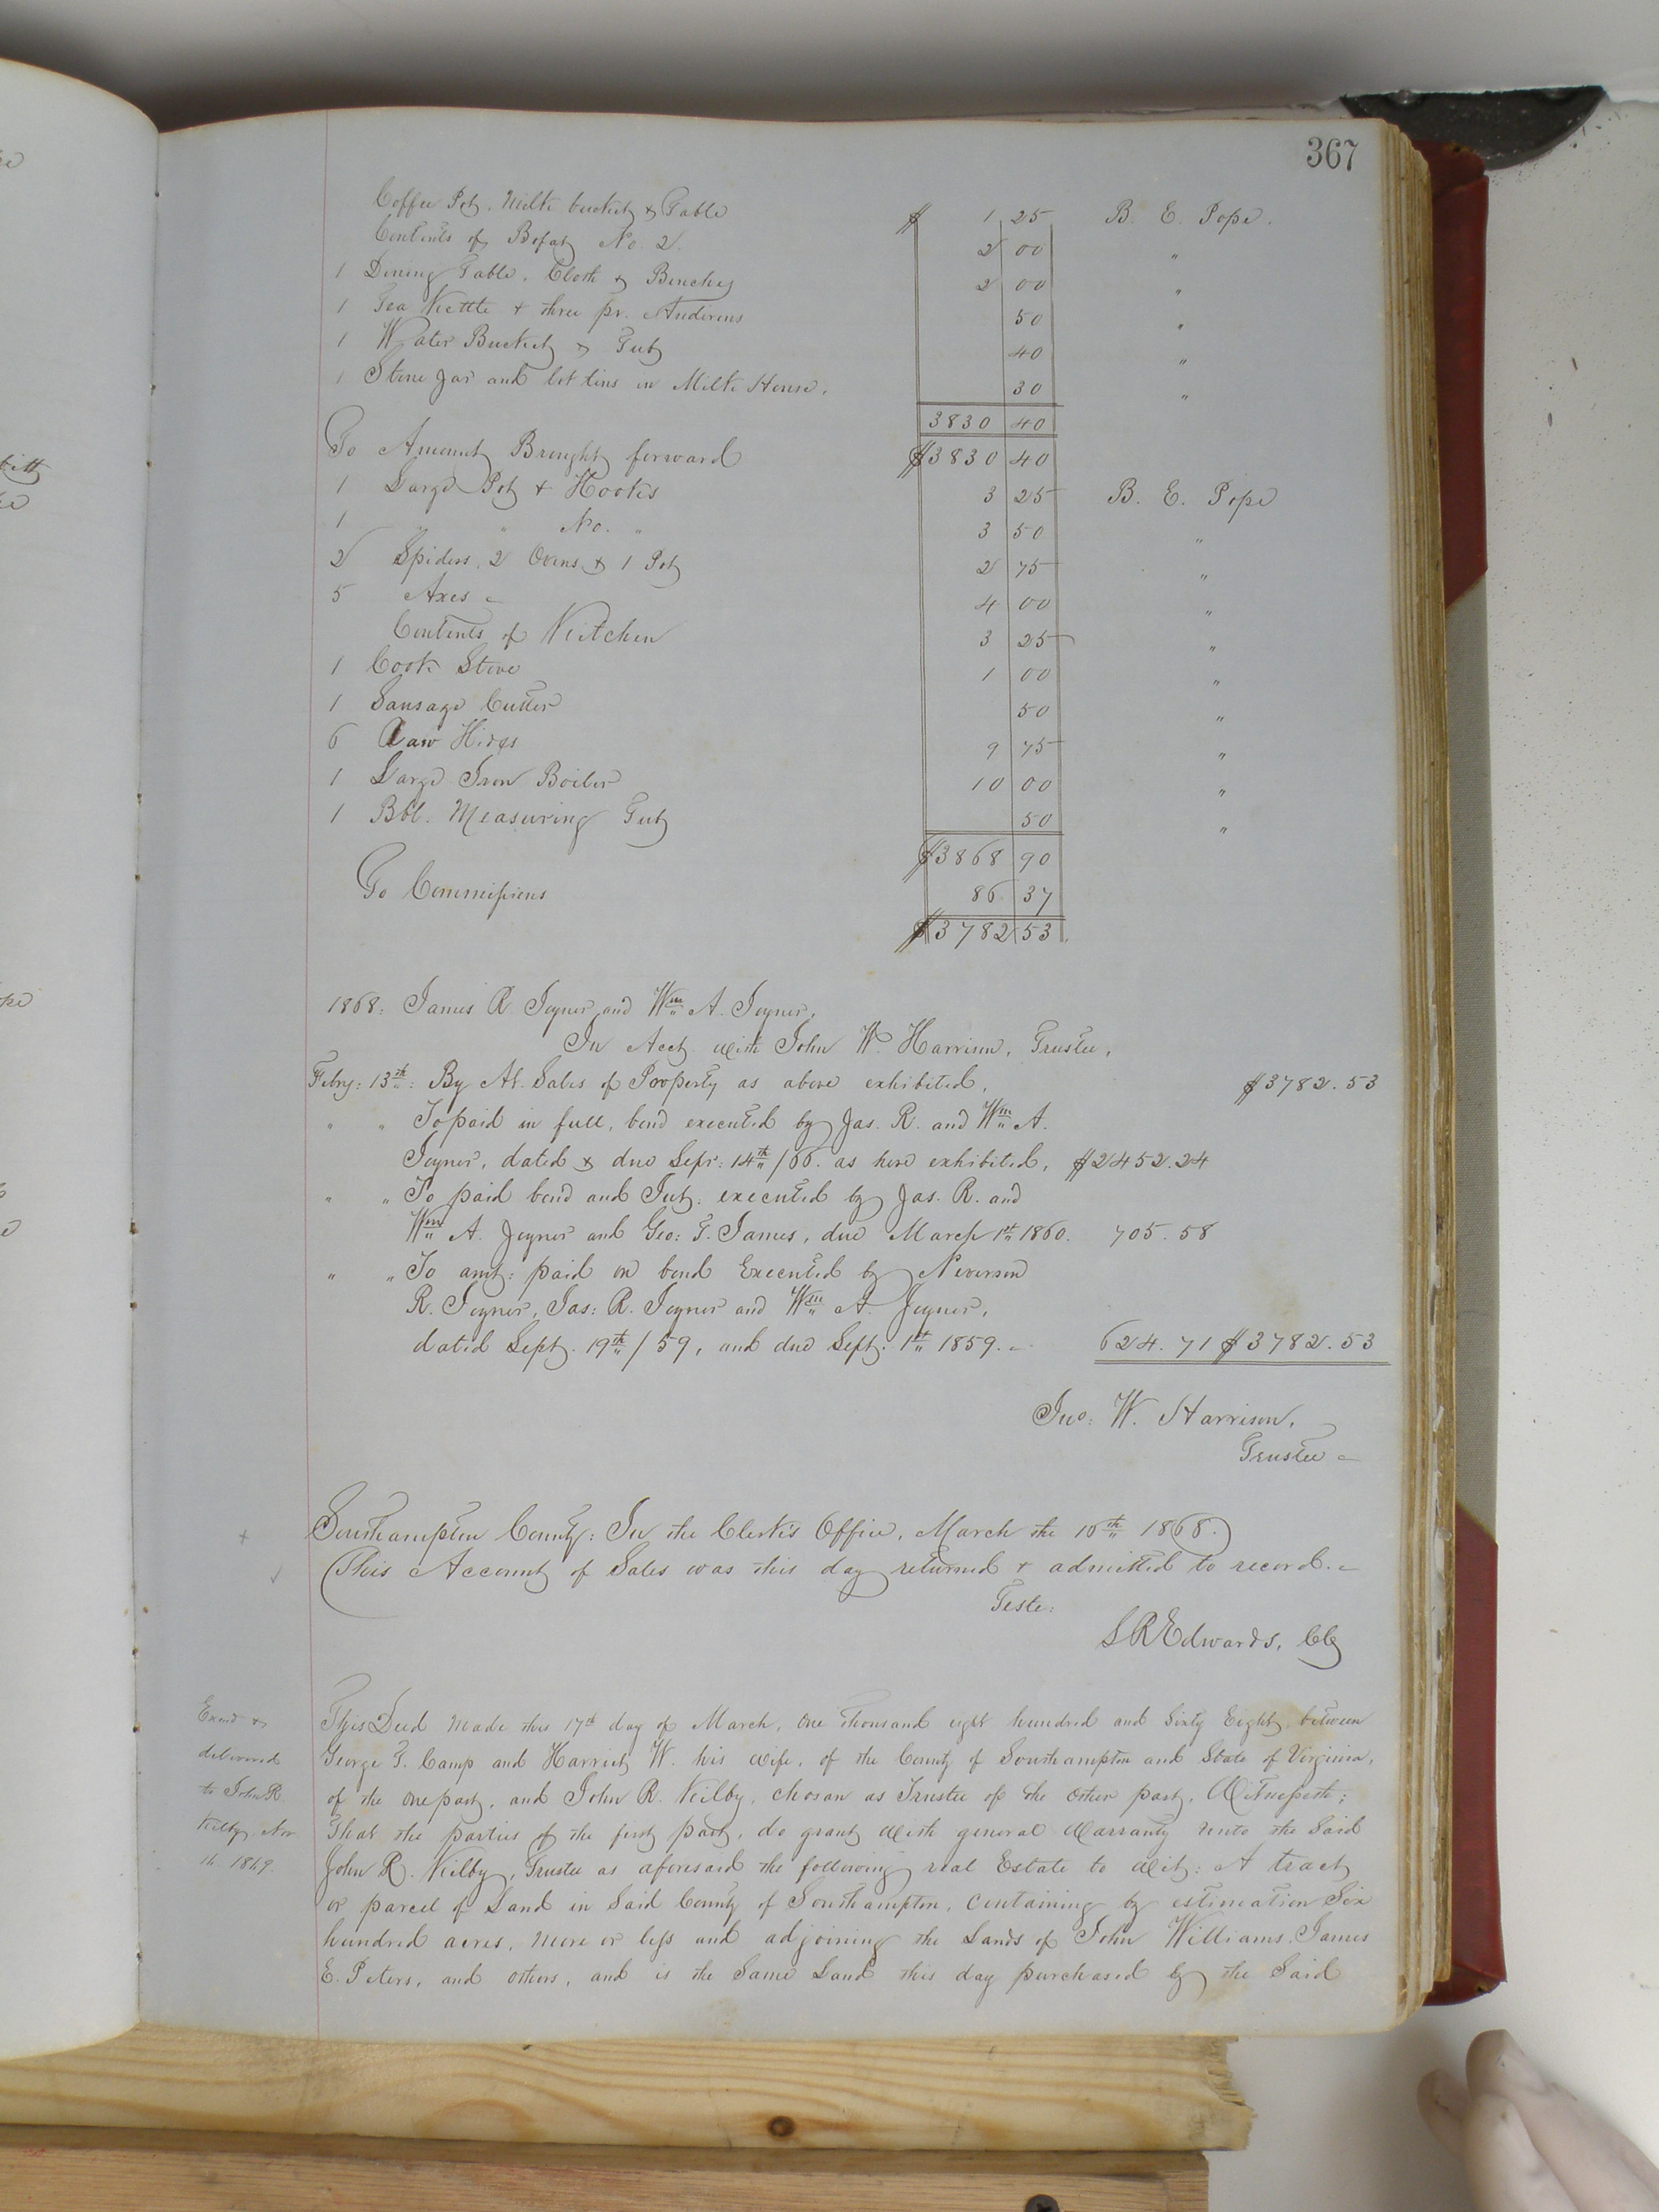 367
Coffee Pot, Milk bucket & Table $ 1 25 B. E. Pope.
Contents of Bofat No. 2. 2 00 "
1 Dining Table, Cloth & Benches 2 00 "
1 Tea Kettle & three pr. Andirons 50 "
1 Water Bucket & Tub 40 "
1 Stone Jar and lot tins in Milk House. 30 "
3830 40
To Amount Brought forward $3830 40
1 Large Pot & Hooks 3 25 B. E. Pope
1 " " No. " 3 50 "
2 Spiders, 2 Ovens & 1 Pot 2 75 "
5 Axes 4 00 "
Contents of Kitchen 3 25 "
1 Cook Stove 1 00 "
1 Sausage Cutter 50 "
6 Raw Hides 9 75 "
1 Large Iron Boiler 10 00 "
1 Bbl. Measuring Tub 50 "
$3868 90
To Commissions 86 37
$3782 53
1868: James R. Joyner and Wm A. Joyner,
In Acct. with John W. Harrison, Trustee,
Febry: 13th: By At. Sales of Property as above exhibited, $3782.53
" " To paid in full, bond executed by Jas. R. and Wm A.
Joyner, dated & due Sepr: 14th/66. as here exhibited, $2452.24
" " To paid bond and Int. executed by Jas. R. and
Wm A. Joyner and Geo: T. James, due March 1st 1860. 705.58
" " To amt: paid on bond Executed by Neverson
R. Joyner, Jas: R. Joyner and Wm A. Joyner,
dated Sept. 19th/59, and due Sept. 1st 1859. 624.71 $3782.53
Jno: W. Harrison,
Trustee
Southampton County: In the Clerk's Office, March the 10th 1868.
This Account of Sales was this day returned & admitted to record.
Teste:
L R Edwards, Clk
Examd &
delivered
to John R.
Kilby Nov
16 1869.
This Deed Made this 17th day of March, One Thousand eight hundred and Sixty Eight, between
George T. Camp and Harriet W. his wife, of the County of Southampton and State of Virginia,
of the one part, and John R. Kilby, chosan as Trustee of the other part, Witnesseth;
That the parties of the first part, do grant with general Warranty unto the Said
John R. Kilby, Trustee as aforesaid the following real Estate to wit: A tract
or parcel of Land in Said County of Southampton, Containing by estimation Six
hundred acres, More or less and adjoining the Lands of John Williams, James
E. Peters, and others, and is the Same Land this day purchased by the Said